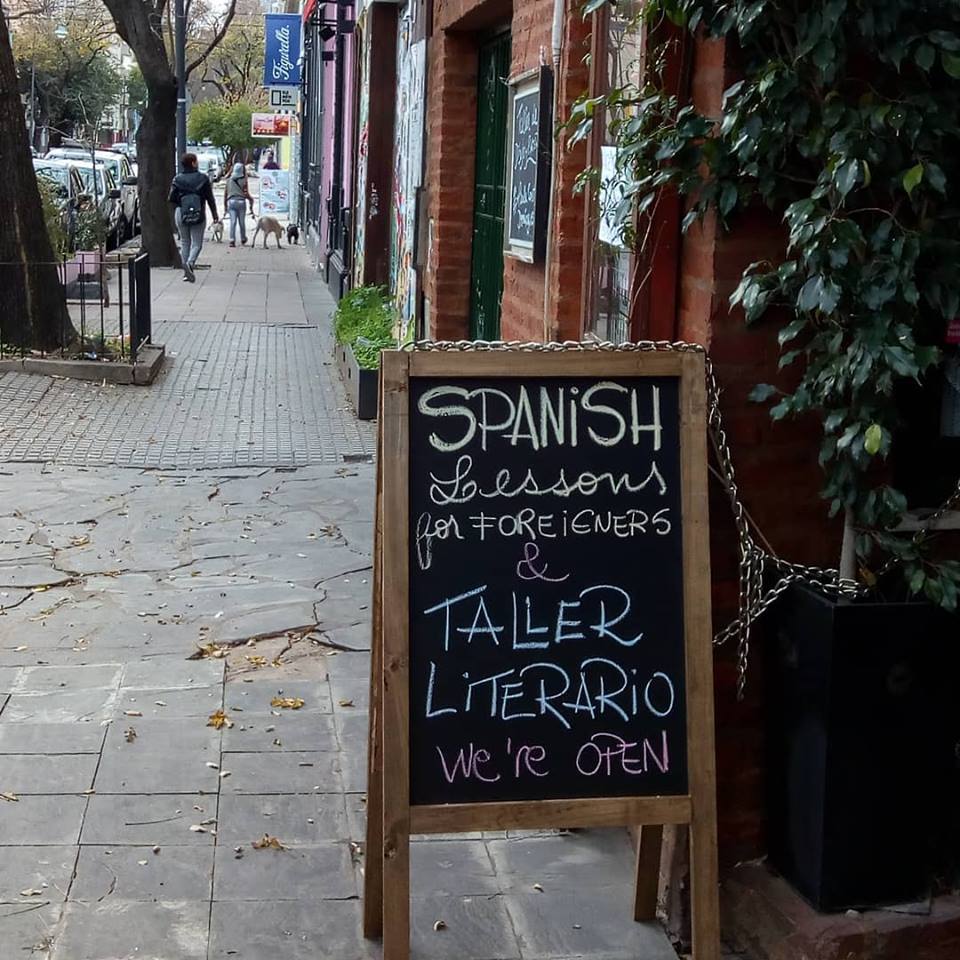 Figurella.
SPANiSH
Lessons
for FOREiGNERS
&
TALLER
LiTERARiO
We're OPEN